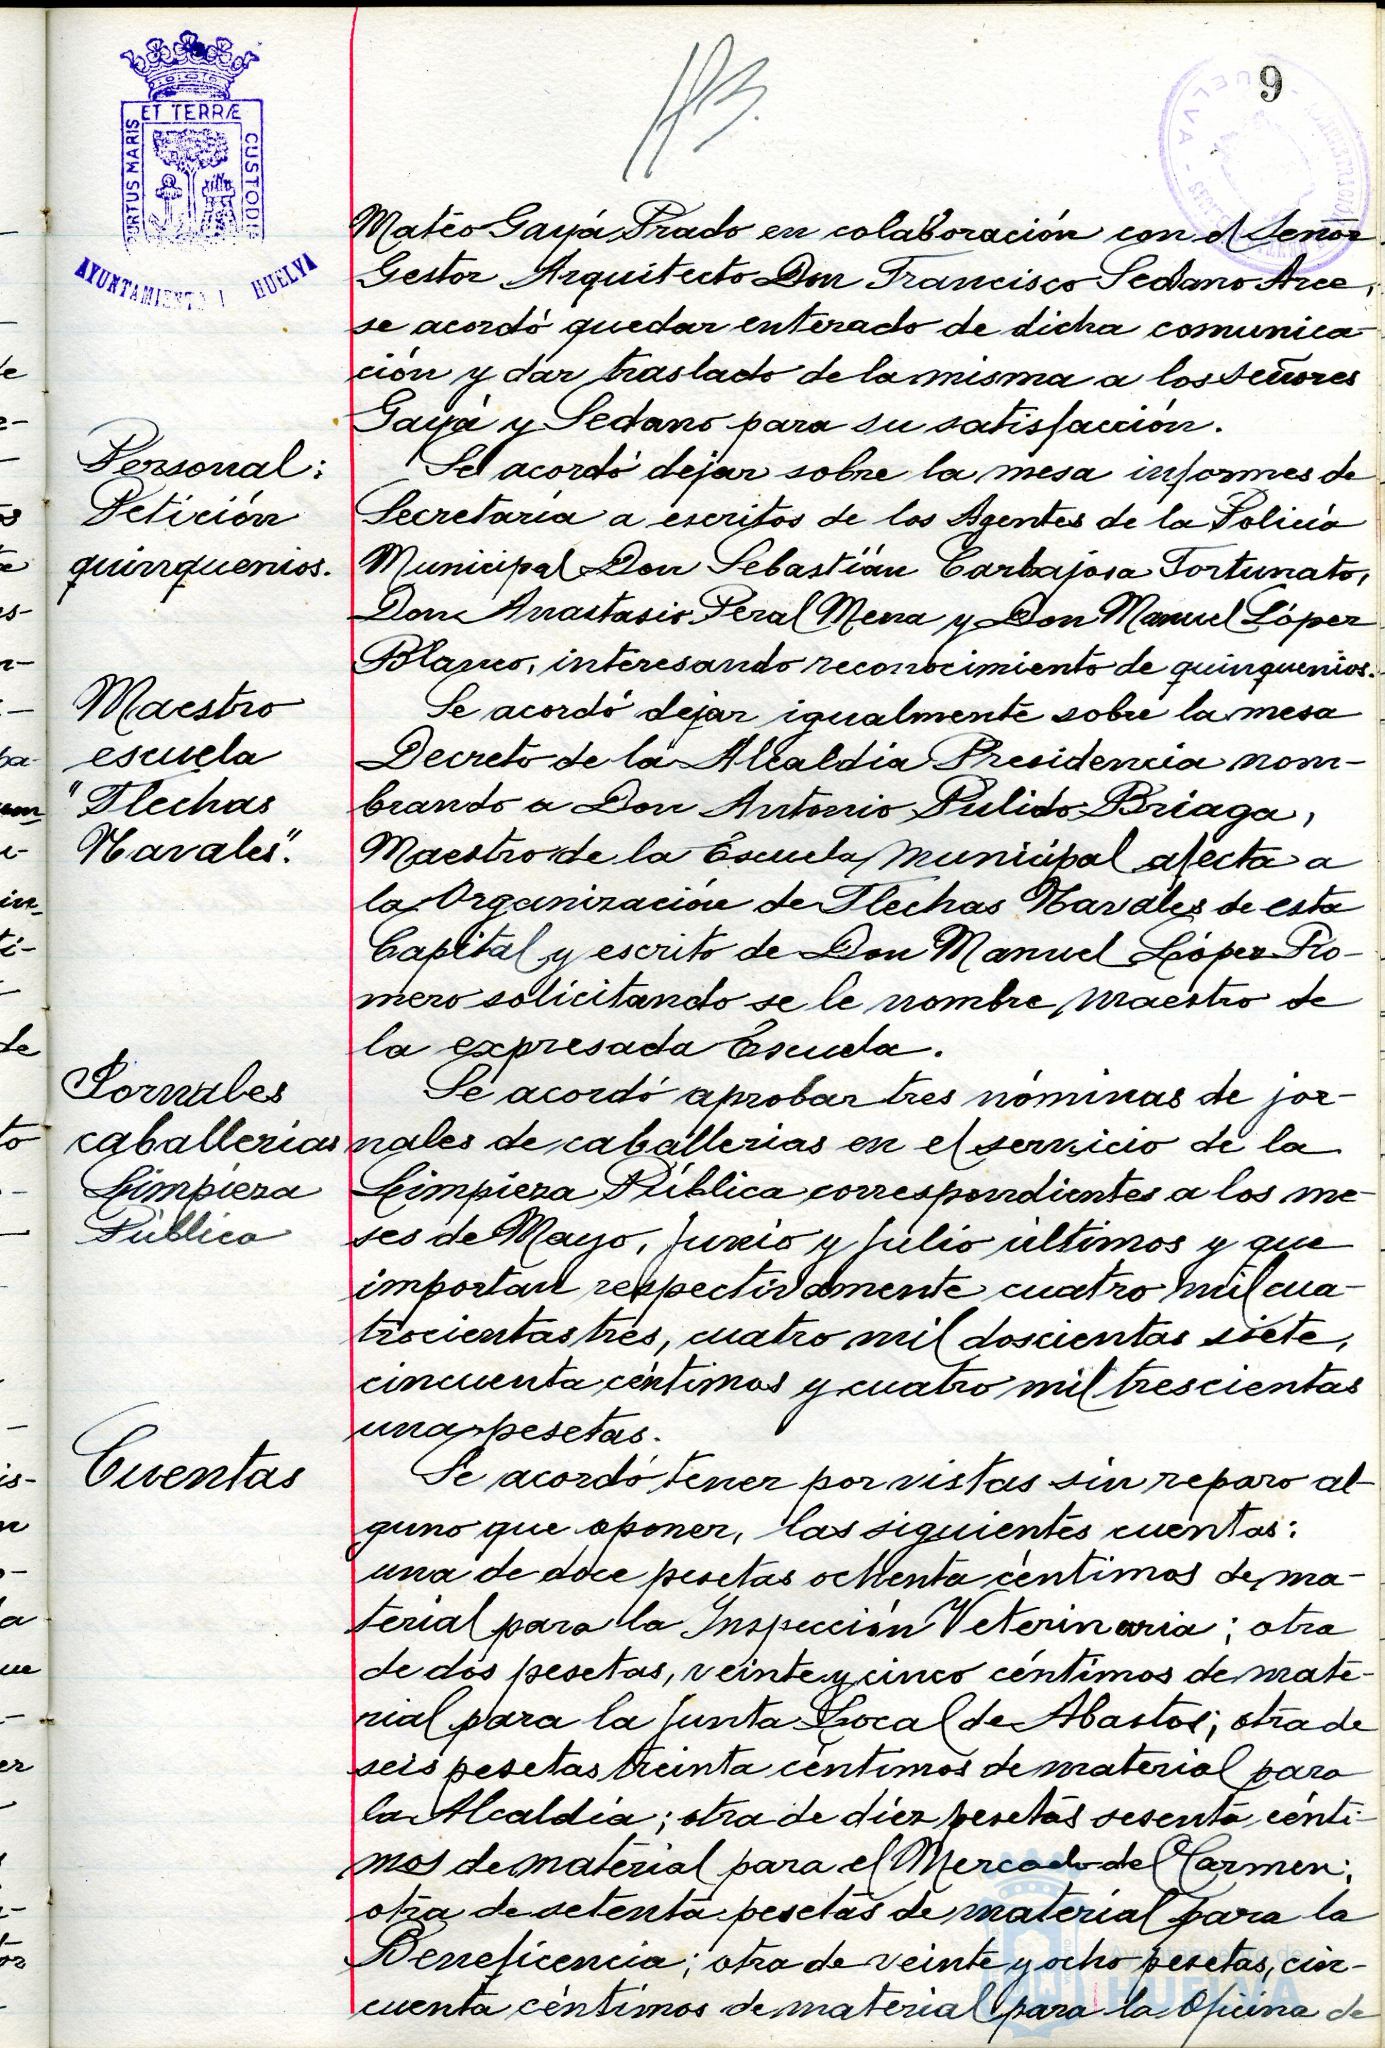 PORTUS MARIS ET TERRÆ CUSTODIA
AYUNTAMIENTO HUELVA
9
Matéo Gayá Prado en colaboración con el Señor
Gestor Arquitecto Don Francisco Sedano Arce,
se acordó quedar enterado de dicha comunica-
ción y dar traslado de la misma a los señores
Gayá y Sedano para su satisfacción.
Personal:
Petición
quinquenios.
Se acordó dejar sobre la mesa informes de
Secretaría a escritos de los Agentes de la Policía
Municipal Don Sebastián Carbajosa Fortunato,
Don Anastasio Peral Mena y Don Manuel López
Blanco, interesando reconocimiento de quinquenios.
Maestro
escuela
"Flechas
Navales".
Se acordó dejar igualmente sobre la mesa
Decreto de la Alcaldía Presidencia nom-
brando a Don Antonio Pulido Briaga,
Maestro de la Escuela Municipal afecta a
la Organización de Flechas Navales de esta
Capital y escrito de Don Manuel López Ro-
mero solicitando se le nombre Maestro de
la expresada Escuela.
Jornales
caballerías
Limpieza
Pública
Se acordó aprobar tres nóminas de jor-
nales de caballerias en el servicio de la
Limpieza Pública correspondientes a los me-
ses de Mayo, Junio y Julio últimos y que
importan respectivamente cuatro mil cua-
trocientas tres, cuatro mil doscientas siete,
cincuenta céntimos y cuatro mil trescientas
una pesetas.
Cuentas
Se acordó tener por vistas sin reparo al-
guno que oponer, las siguientes cuentas:
una de doce pesetas ochenta céntimos de ma-
terial para la Inspección Veterinaria; otra
de dos pesetas, veinte y cinco céntimos de mate-
rial para la Junta Local de Abastos; otra de
seis pesetas treinta céntimos de material para
la Alcaldía; otra de diez pesetas sesenta cénti-
mos de material para el Mercado del Carmen;
otra de setenta pesetas de material para la
Beneficencia; otra de veinte y ocho pesetas, cin-
cuenta céntimos de material para la Oficina de
Ayuntamiento de
HUELVA